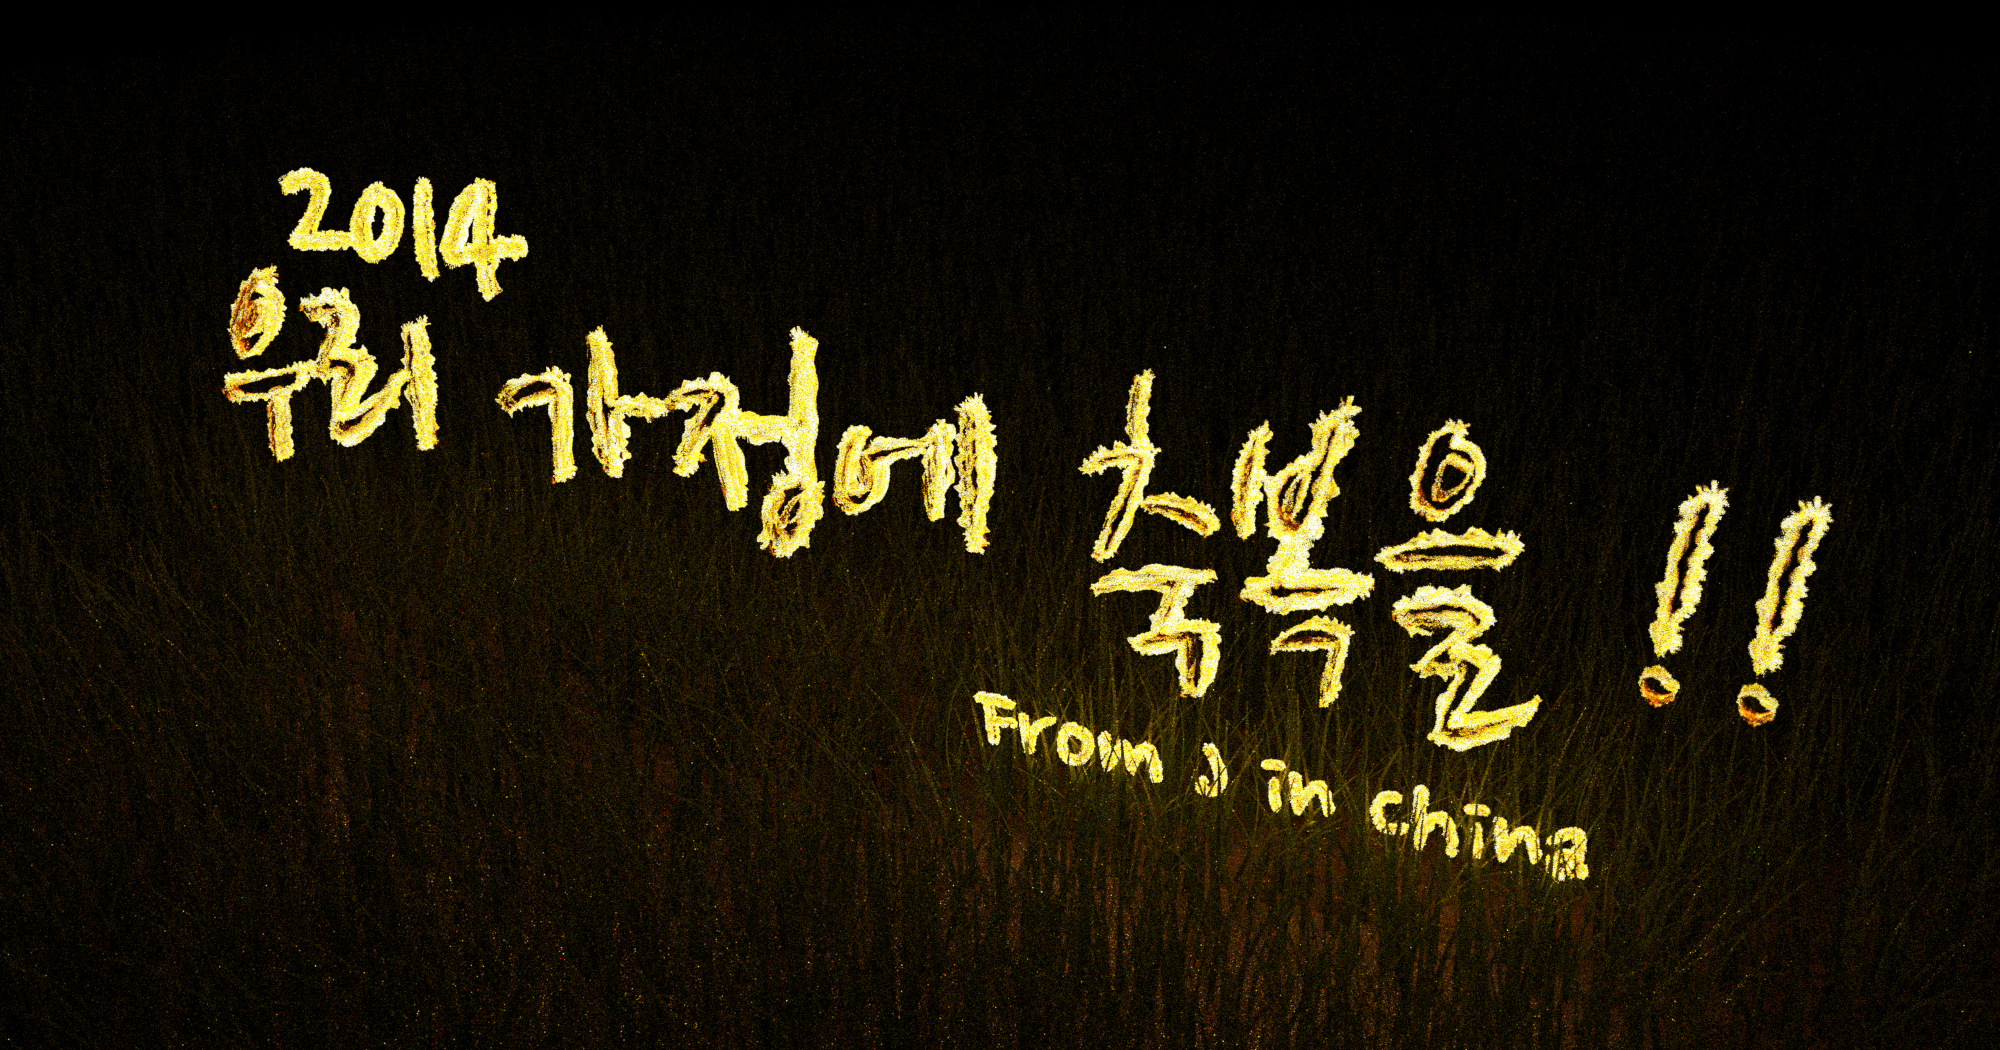 2014
우리 가정에 축복을 !!
From J in china